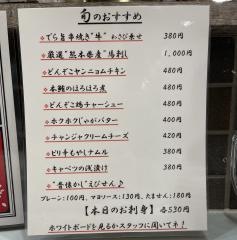 旬のおすすめ
でら旨串焼き"牛" わさび乗せ 380円
厳選"熊本県産"馬刺し 1,000円
どんぞこヤンニョムチキン 480円
本鮪のほろほろ煮 480円
どんぞこ鶏チャーシュー 480円
ホクホクじゃがバター 400円
チャンジャクリームチーズ 420円
ピリ辛もやしナムル 380円
キャベツの浅漬け 380円
"昔懐かし"えびせん♪
プレーン:100円、マヨソース:130円、たません:180円
【本日のお刺身】 各530円
ホワイトボードを見るかスタッフに聞いてネ!